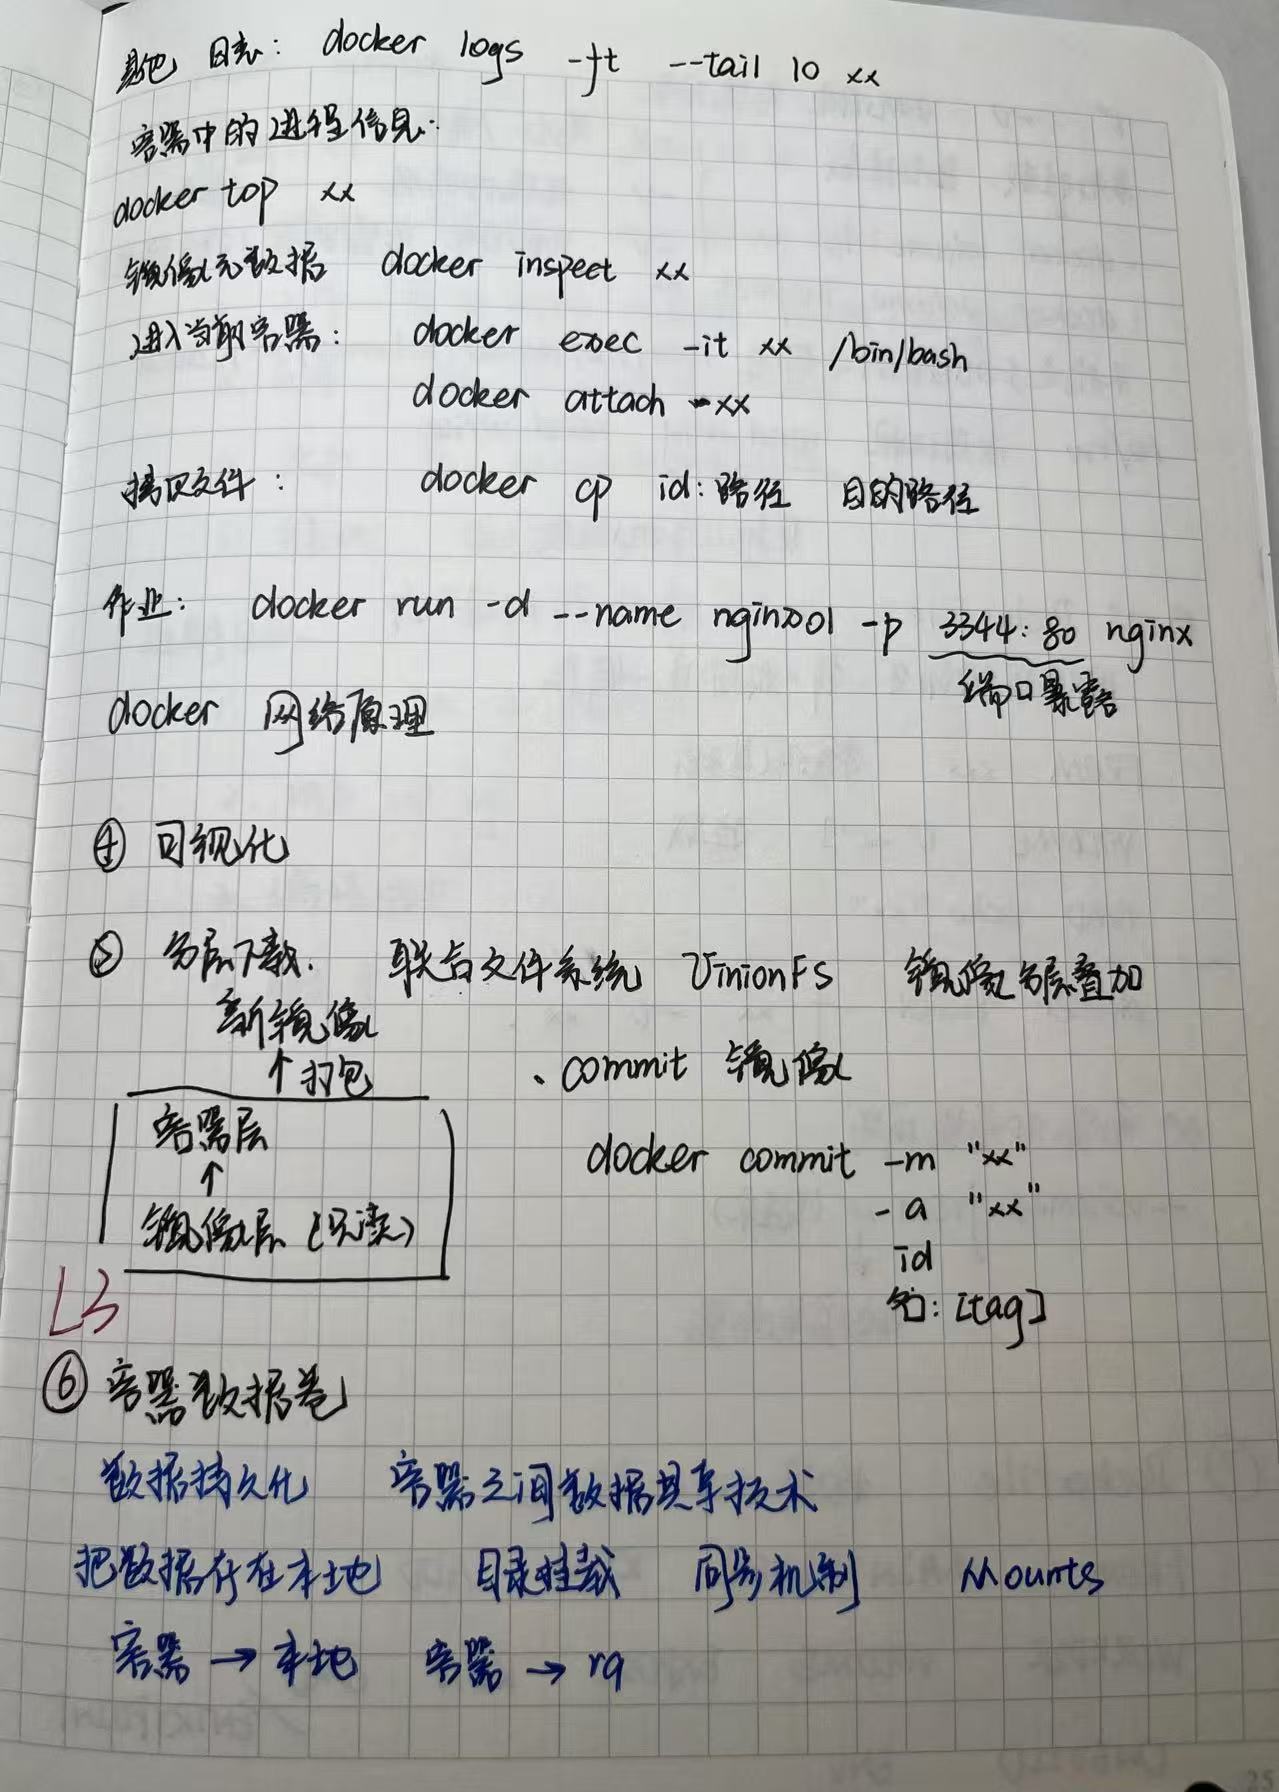 其他 日志: docker logs -ft --tail 10 xx
容器中的进程信息:
docker top xx
镜像元数据 docker inspect xx
进入当前容器: docker exec -it xx /bin/bash
docker attach xx
拷贝文件: docker cp id:路径 目的路径
作业: docker run -d --name nginx01 -p 3344:80 nginx
端口暴露
docker 网络原理
④ 可视化
⑤ 分层下载. 联合文件系统 UnionFS 镜像分层叠加
新镜像
↑打包
、commit 镜像
容器层
docker commit -m "xx"
↑
-a "xx"
镜像层 (只读)
id
名:[tag]
L3
⑥ 容器数据卷
数据持久化 容器之间数据共享技术
把数据存在本地 目录挂载 同步机制 Mounts
容器 → 本地 容器 → rq